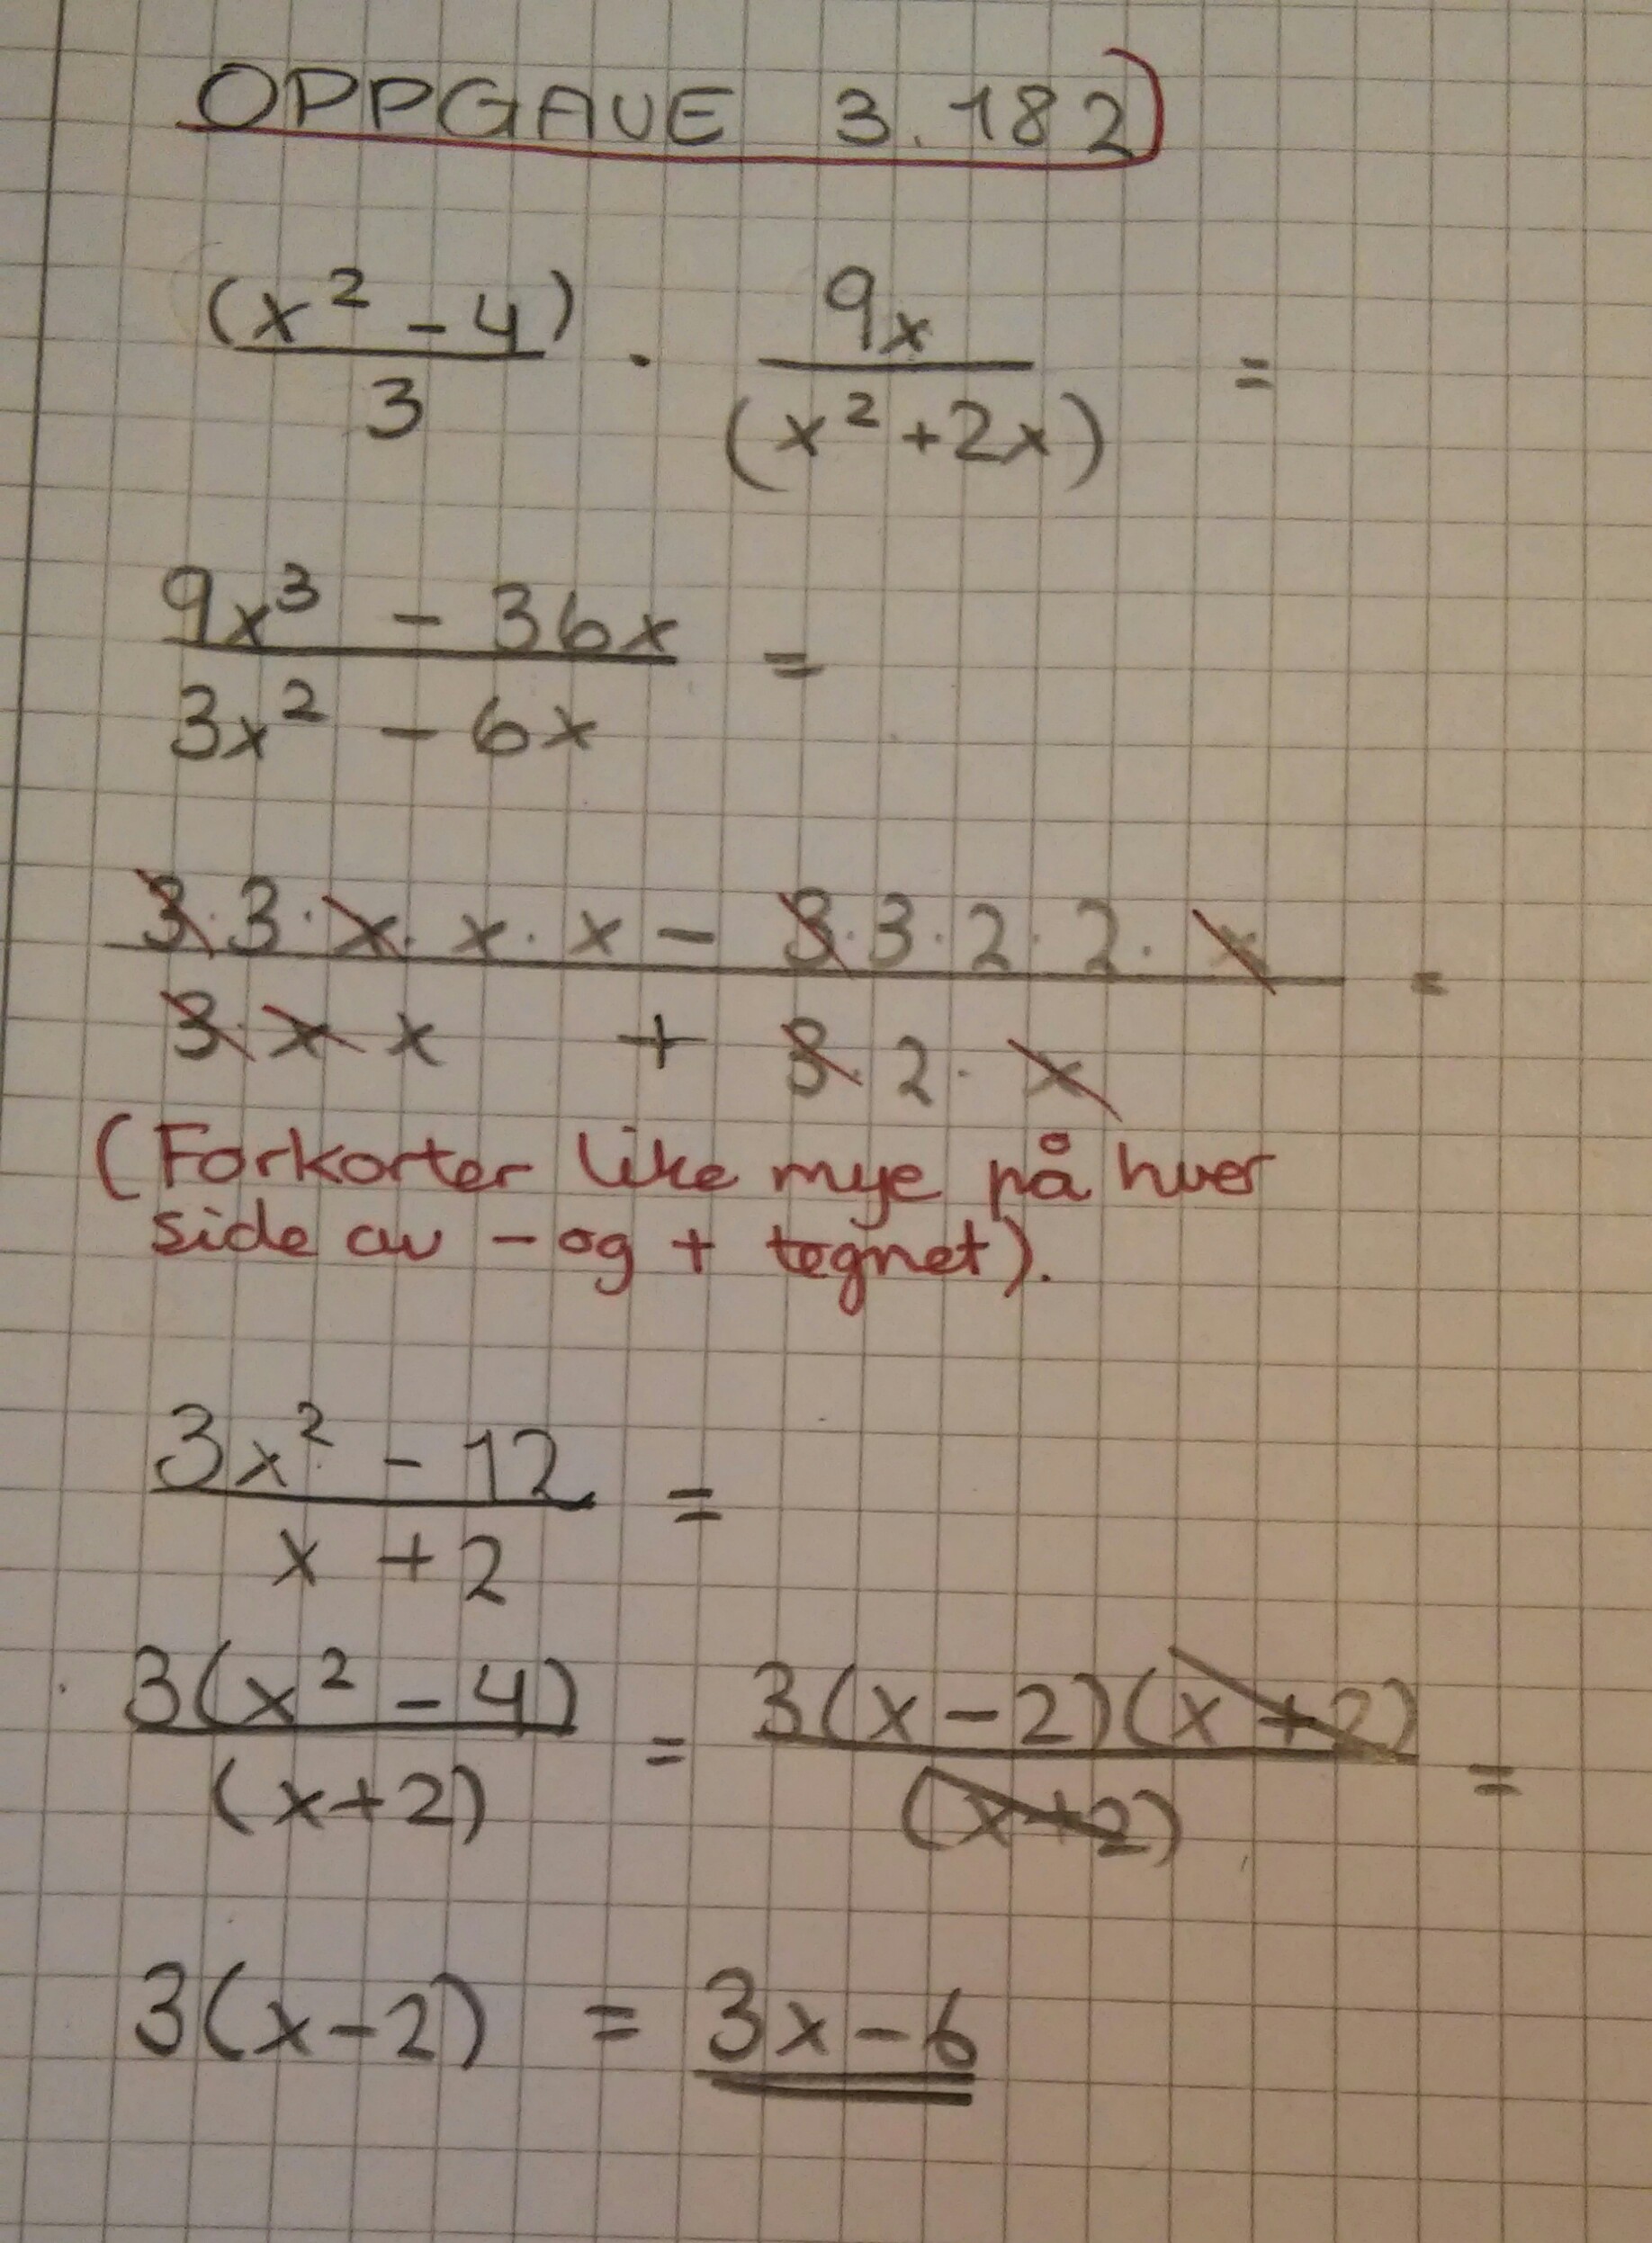 OPPGAVE 3.182)
(x² - 4)/3 · 9x/(x² + 2x) =
(9x³ - 36x)/(3x² - 6x) =
(3·3·x·x·x - 3·3·2·2·x)/(3·x x + 3·2·x) =
(Forkorter like mye på hver
side av - og + tegnet).
(3x² - 12)/(x + 2) =
3(x² - 4)/(x+2) = 3(x-2)(x+2)/(x+2) =
3(x-2) = 3x-6